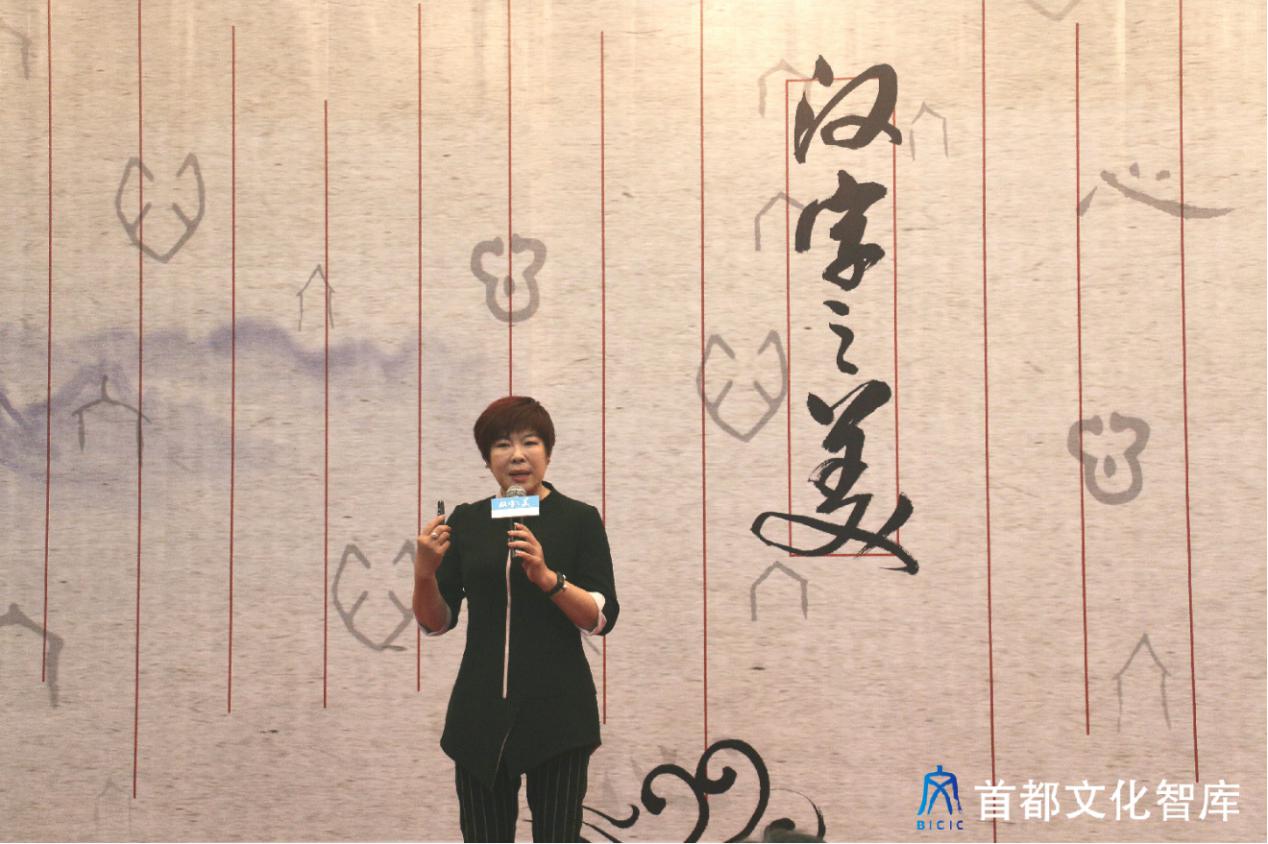 汉字之美
汉字之美
首都文化智库
BICIC